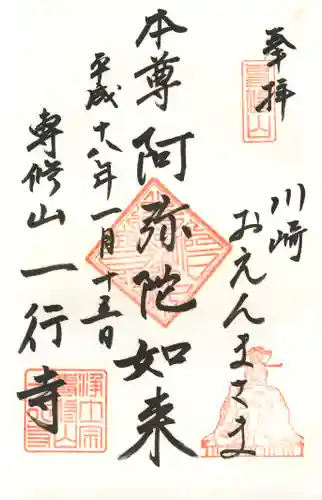 奉拝
川崎
おえんまさま
本尊 阿弥陀如来
平成十八年一月十五日
専修山 一行寺